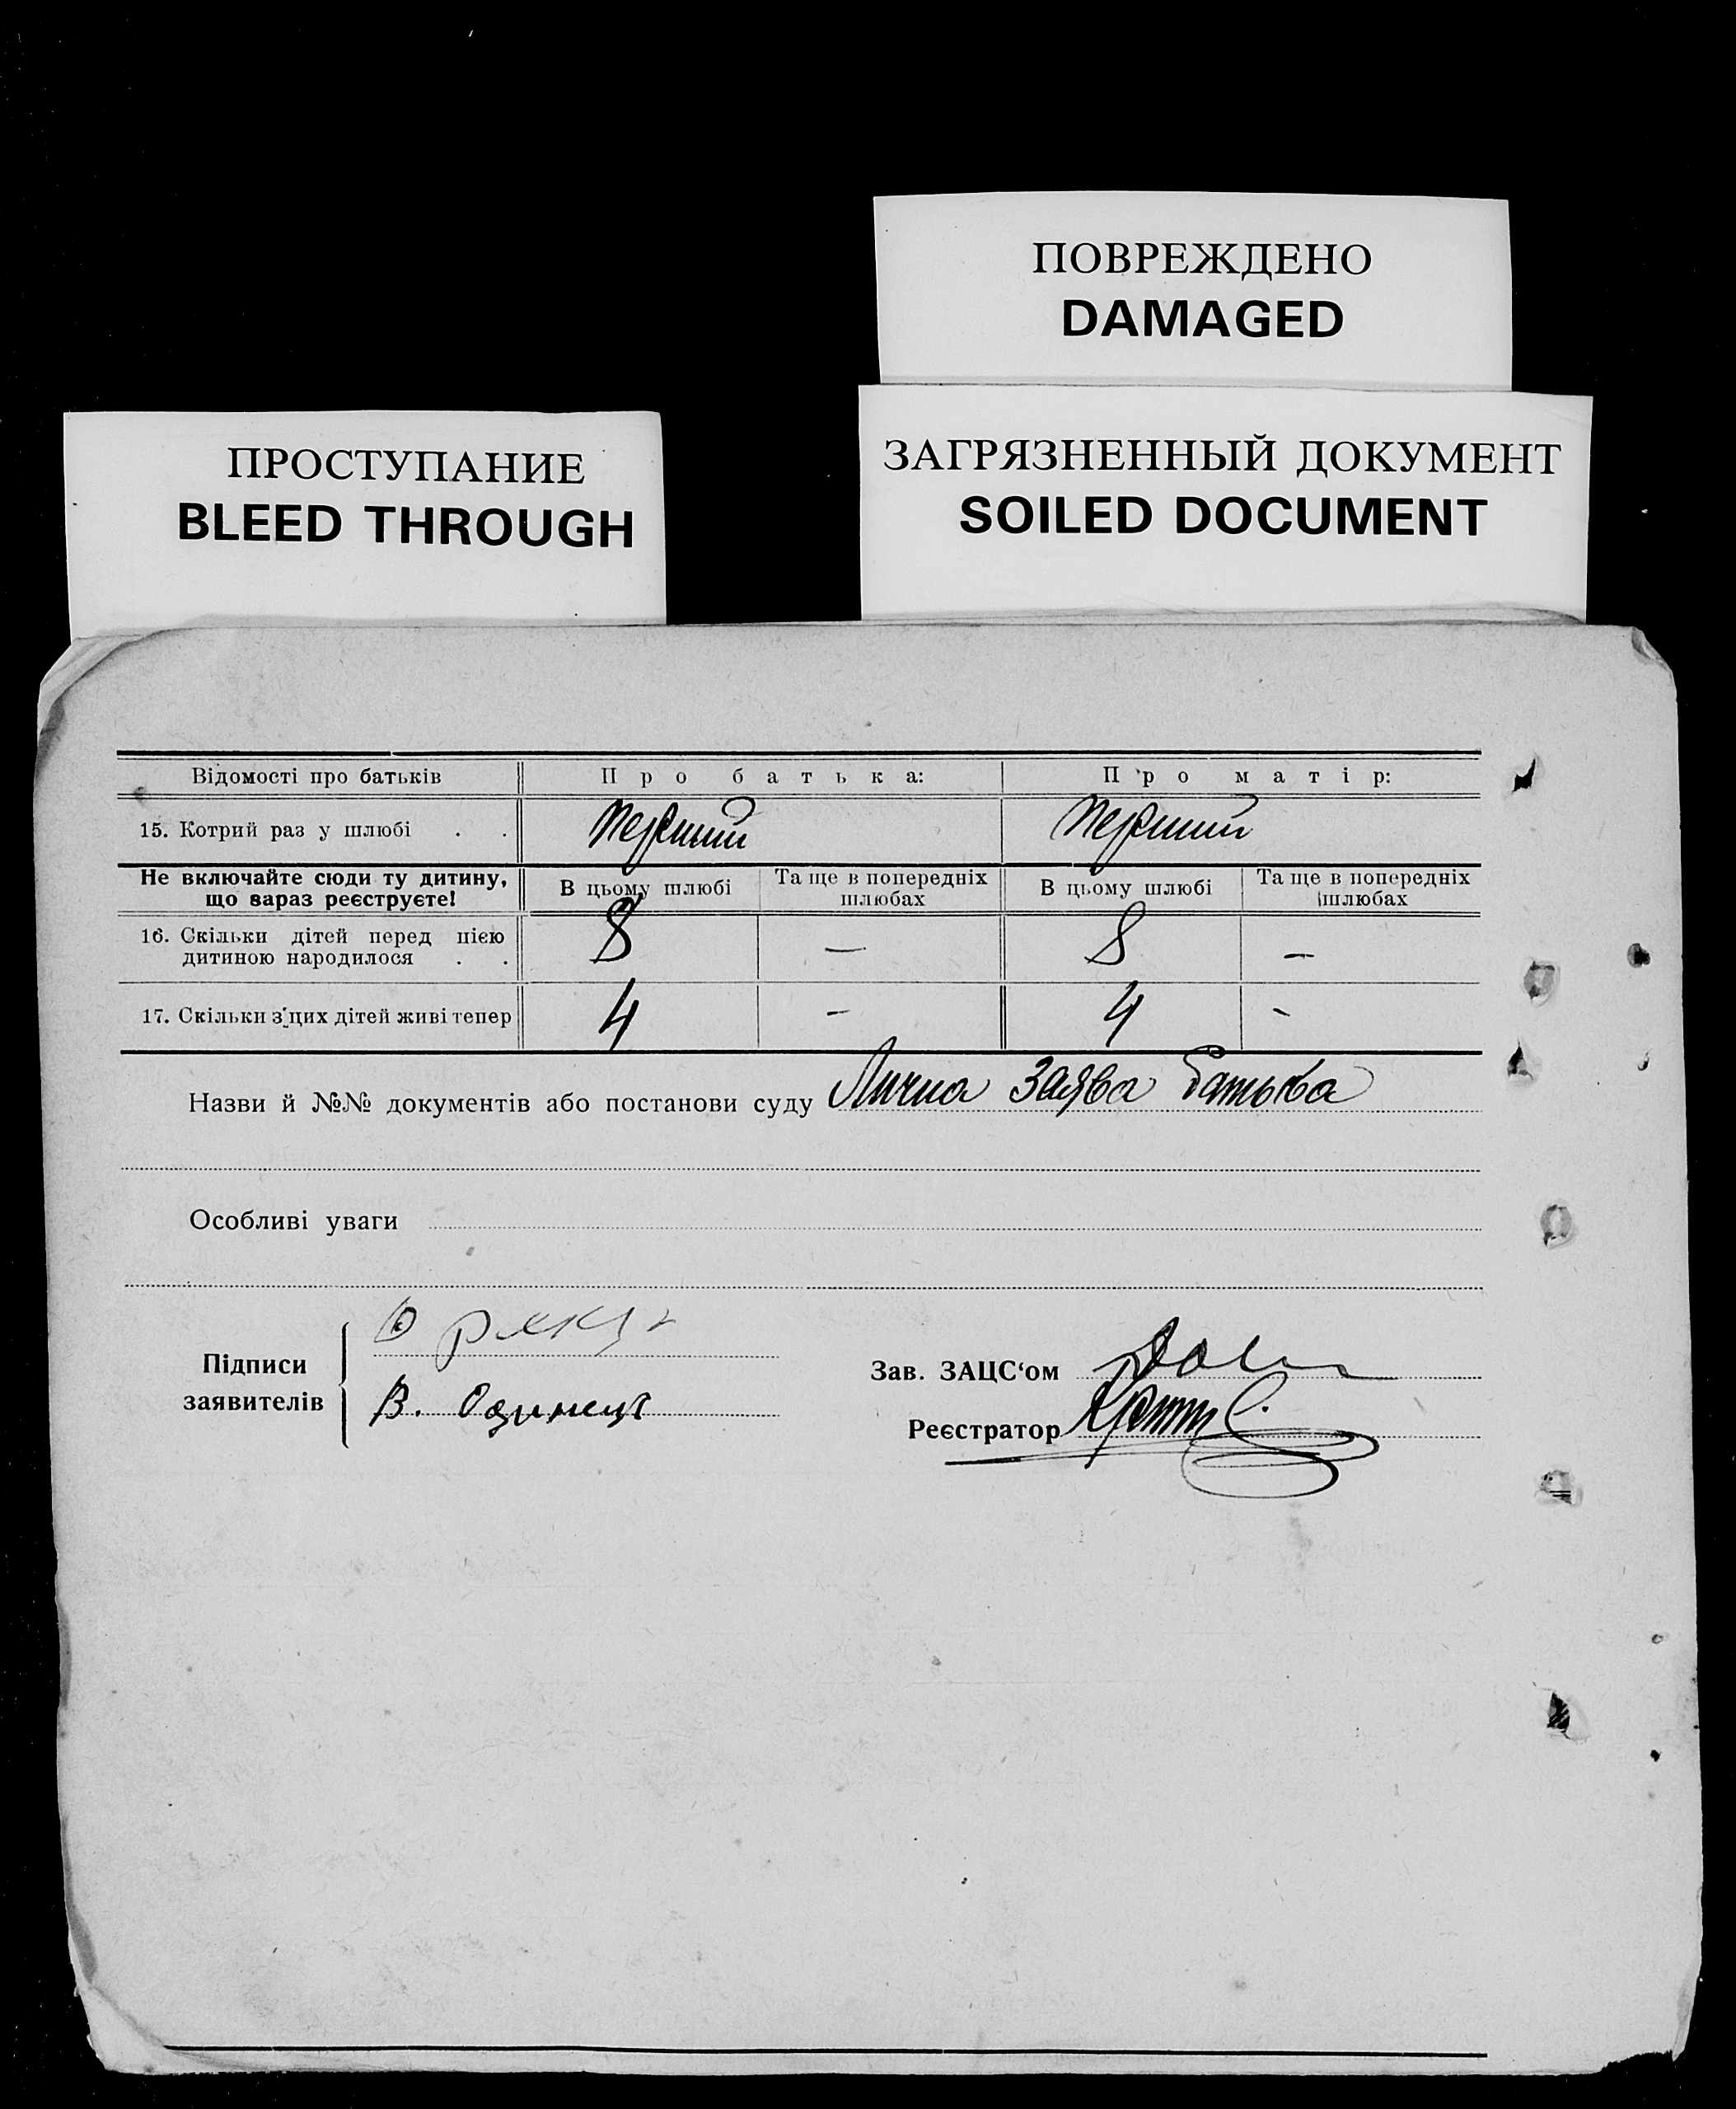 ПОВРЕЖДЕНО
DAMAGED
ПРОСТУПАНИЕ
BLEED THROUGH
ЗАГРЯЗНЕННЫЙ ДОКУМЕНТ
SOILED DOCUMENT
Відомості про батьків Про батька: Про матір:
15. Котрий раз у шлюбі . . Перший Перший
Не включайте сюди ту дитину, що зараз реєструєте! В цьому шлюбі Та ще в попередніх шлюбах В цьому шлюбі Та ще в попередніх шлюбах
16. Скільки дітей перед цією
дитиною народилося . . 8 — 8 —
17. Скільки з цих дітей живі тепер 4 - 4 -
Назви й №№ документів або постанови суду Лична заява батька
Особливі уваги
Підписи
заявителів
В. Одинець
Зав. ЗАЦС‘ом
Реєстратор